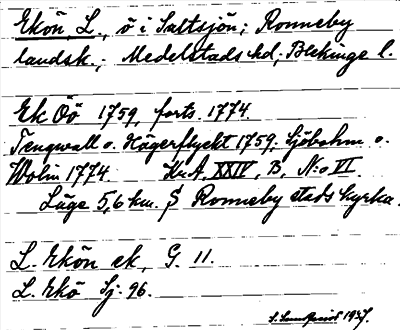 Ekön L., ö i Saltsjön; Ronneby
landsk.; Medelstads hd; Blekinge l.
Ek Öö 1759, forts. 1774.
Tengwall o. Hägerflyckt 1759; Sjöbohm o.
Wolin 1774. Kr.A. XXIV, B, N:o VI.
Läge 5,6 km. S Ronneby stads kyrka.
L. Ekön ek, G. 11.
L. Ekö Sj. 96.
1927.